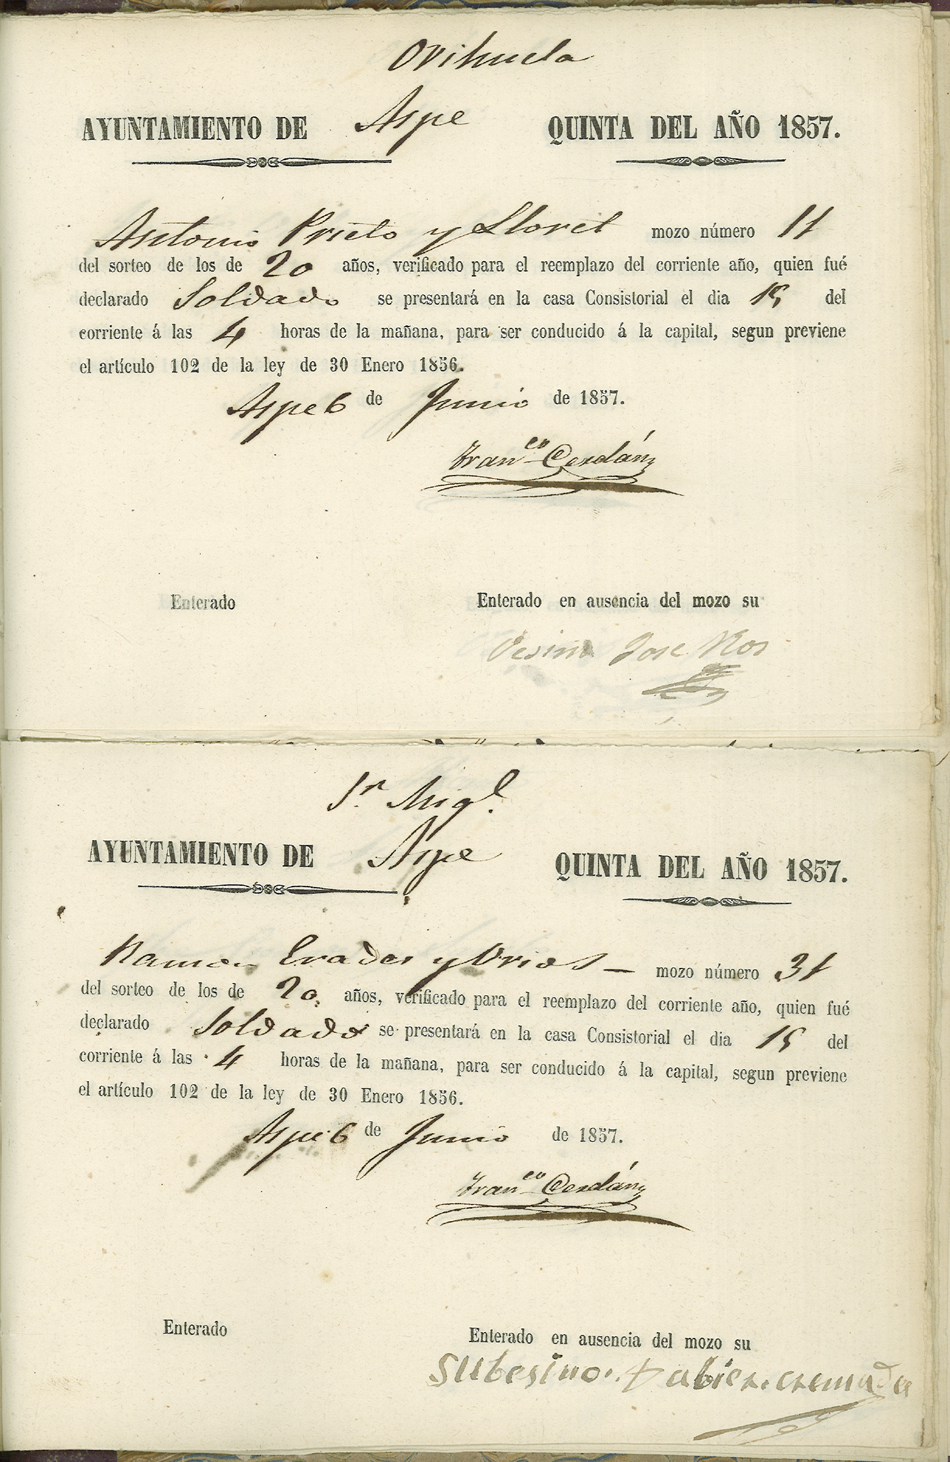 Orihuela
AYUNTAMIENTO DE Aspe QUINTA DEL AÑO 1857.
Antonio Prieto y Lloret mozo número 11
del sorteo de los de 20 años, verificado para el reemplazo del corriente año, quien fué
declarado Soldado se presentará en la casa Consistorial el dia 15 del
corriente á las 4 horas de la mañana, para ser conducido á la capital, segun previene
el artículo 102 de la ley de 30 Enero 1856.
Aspe 6 de Junio de 1857.
Franco Cerdán
Enterado Enterado en ausencia del mozo su
Vesino Jose Ros
Sn Migl.
AYUNTAMIENTO DE Aspe QUINTA DEL AÑO 1857.
Ramon Erades y mozo número 31
del sorteo de los de 20 años, verificado para el reemplazo del corriente año, quien fué
declarado Soldado se presentará en la casa Consistorial el dia 15 del
corriente á las 4 horas de la mañana, para ser conducido á la capital, segun previene
el artículo 102 de la ley de 30 Enero 1856.
Aspe 6 de Junio de 1857.
Franco Cerdán
Enterado Enterado en ausencia del mozo su
subesino